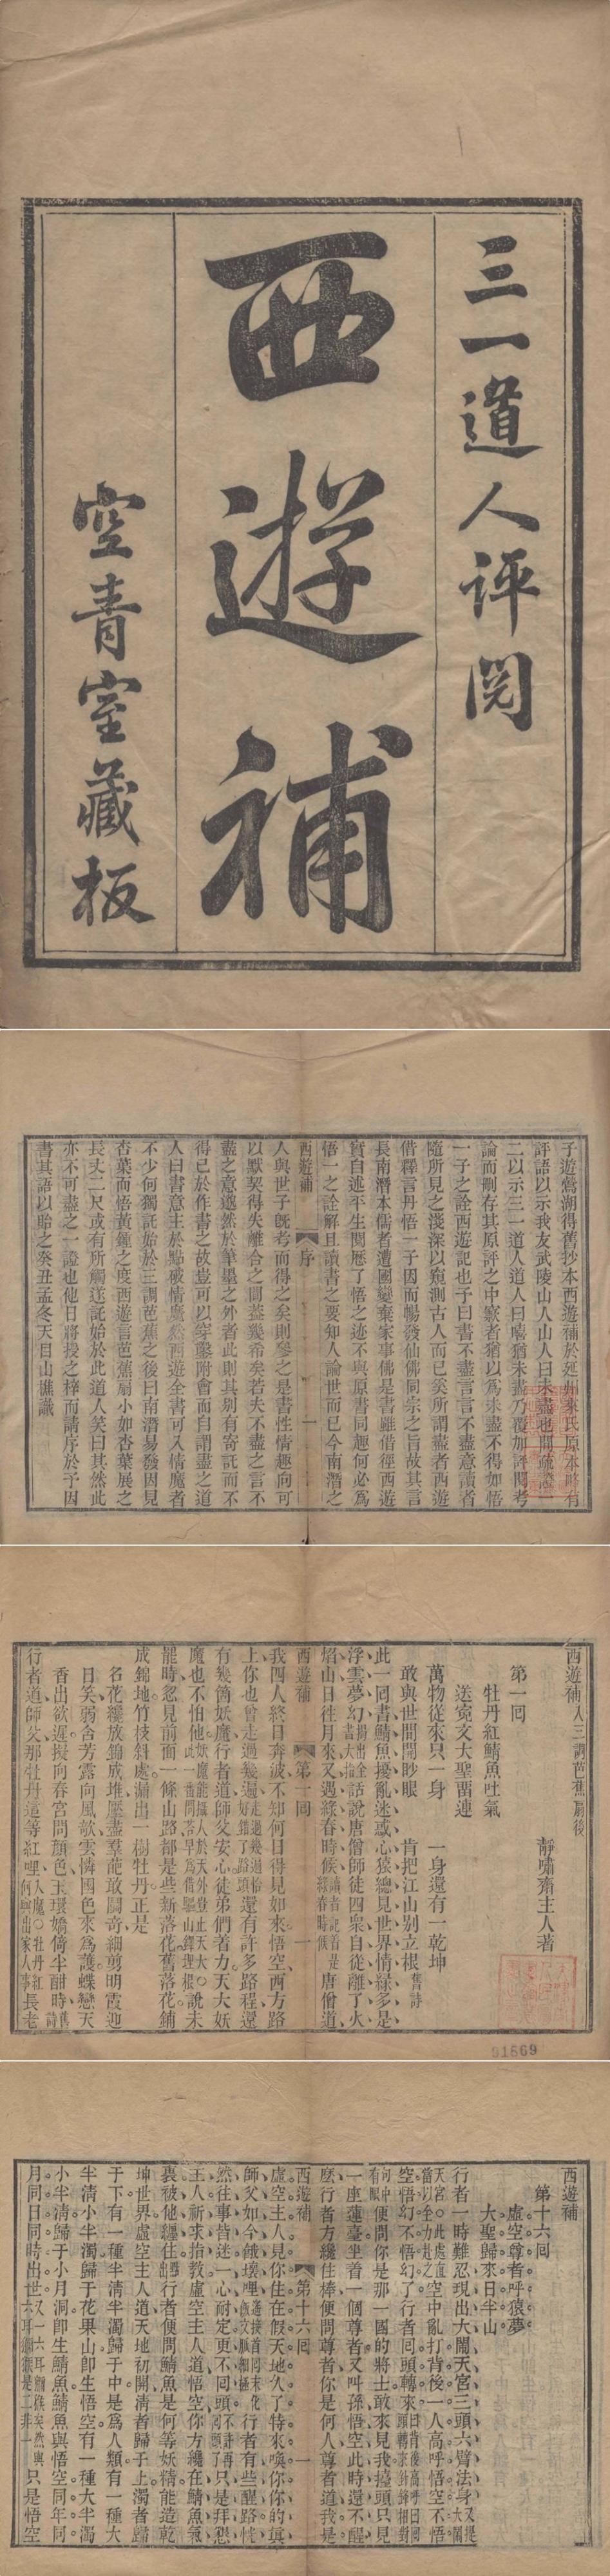 三一道人评閱
西遊補
空青室藏板
子遊鶯湖得舊抄本西遊補於延州來氏原本略有
評語以示我友武陵山人山人曰未盡也間疏證一
二以示三一道人道人曰嘻猶未盡乃覆加評閱考
論而刪存其原評之中窾者猶以為未盡不得如悟
一子之詮西遊記也予曰書不盡言言不盡意讀者
隨所見之淺深以窺測古人而已奚所謂盡者西遊
借釋言丹悟一子因而暢發仙佛同宗之旨故其言
長南潛本儒者遭國變棄家事佛是書雖借徑西遊
實自述平生閱歷了悟之迹不與原書同趣何必為
悟一之詮解且讀書之要知人論世而已今南潛之
西遊補
序
一
人與世子既考而得之矣則參之是書性情趣向可
以默契得失離合之間蓋幾希矣若夫不盡之言不
盡之意邈然於筆墨之外者此則其別有寄託而不
得已於作書之故豈可以穿鑿附會而自謂盡之道
人曰書意主於點破情魔然西遊全書可入情魔者
不少何獨託始於三調芭蕉之後曰南潛易發因見
杏葉而悟黃鍾之度西遊言芭蕉扇小如杏葉展之
長丈二尺或有所觸遂託始於此道人笑曰其然此
亦不可盡之一證也他日將授之梓而請序於予因
書其語以貽之癸丑孟冬天目山樵識
西遊補入三調芭蕉扇後
靜嘯齋主人著
第一回
牡丹紅鯖魚吐氣
送冤文大聖畱連
萬物從來只一身 一身還有一乾坤
敢與世間開眇眼 肯把江山別立根舊詩
此一回書鯖魚擾亂迷惑心猿總見世界情緣多是
浮雲夢幻揭出全書大指話說唐僧師徒四衆自從離了火
焰山日往月來又遇綠春時候讀者記着是綠春時候唐僧道
西遊補
第一回
一
我四人終日奔波不知何日得見如來悟空西方路
上你也曾走過幾遍走過幾遍恰好錯了路頭還有許多路程還
有幾箇妖魔行者道師父安心徒弟們着力天大妖
魔也不怕他妖魔能攝人於天外豈止天大〇此一番問荅早爲借驅山鐸埋根說未
罷時忽見前面一條山路都是些新落花舊落花鋪
成錦地竹枝斜處漏出一樹牡丹正是
名花纔放錦成堆壓盡羣葩敢鬬奇細剪明霞迎
日笑弱含芳露向風欹雲憐國色來爲護蝶戀天
香出欲遲擬向春宮問顏色玉環嬌倚半酣時舊詩
行者道師父那牡丹這等紅哩入魔〇牡丹紅何與出家人事長老
91869
西遊補
第十六回
虛空尊者呼猿夢
大聖歸來日半山
行者一時難忍現出大鬧天宮三頭六臂法身又提大鬧天宮〇此處直當以全力赴之空中亂打背後一人高呼悟空不悟
空悟幻不悟幻了行者回頭轉來曰背後高呼曰回頭轉來針鋒相對句中有眼便問你是那一國的將士敢來見我擡頭只見
一座蓮臺坐着一個尊者又呌孫悟空此時還不醒
麽行者方纔住棒便問尊者你是何人尊者道我是
西遊補
第十六回
一
虛空主人見你住在假天地久了特來喚你你的眞
師父如今餓壞哩遙接首回末化飯文脉細極行者有些醒路恍
然往事昔迷一心耐定更不回頭不許再回頭了只是拜懇
主人祈求指教虛空主人道悟空你方纔在鯖魚氣
裏被他纏住點出行者便問鯖魚是何等妖精能造乾
坤世界虛空主人道天地初開清者歸于上濁者歸
于下有一種半清半濁歸于中是爲人類有一種大
半清小半濁歸于花果山卽生悟空有一種大半濁
小半清歸于小月洞卽生鯖魚鯖魚與悟空同年同
月同日同時出世又一六耳獼猴矣然與六耳獼猴是二非一只是悟空